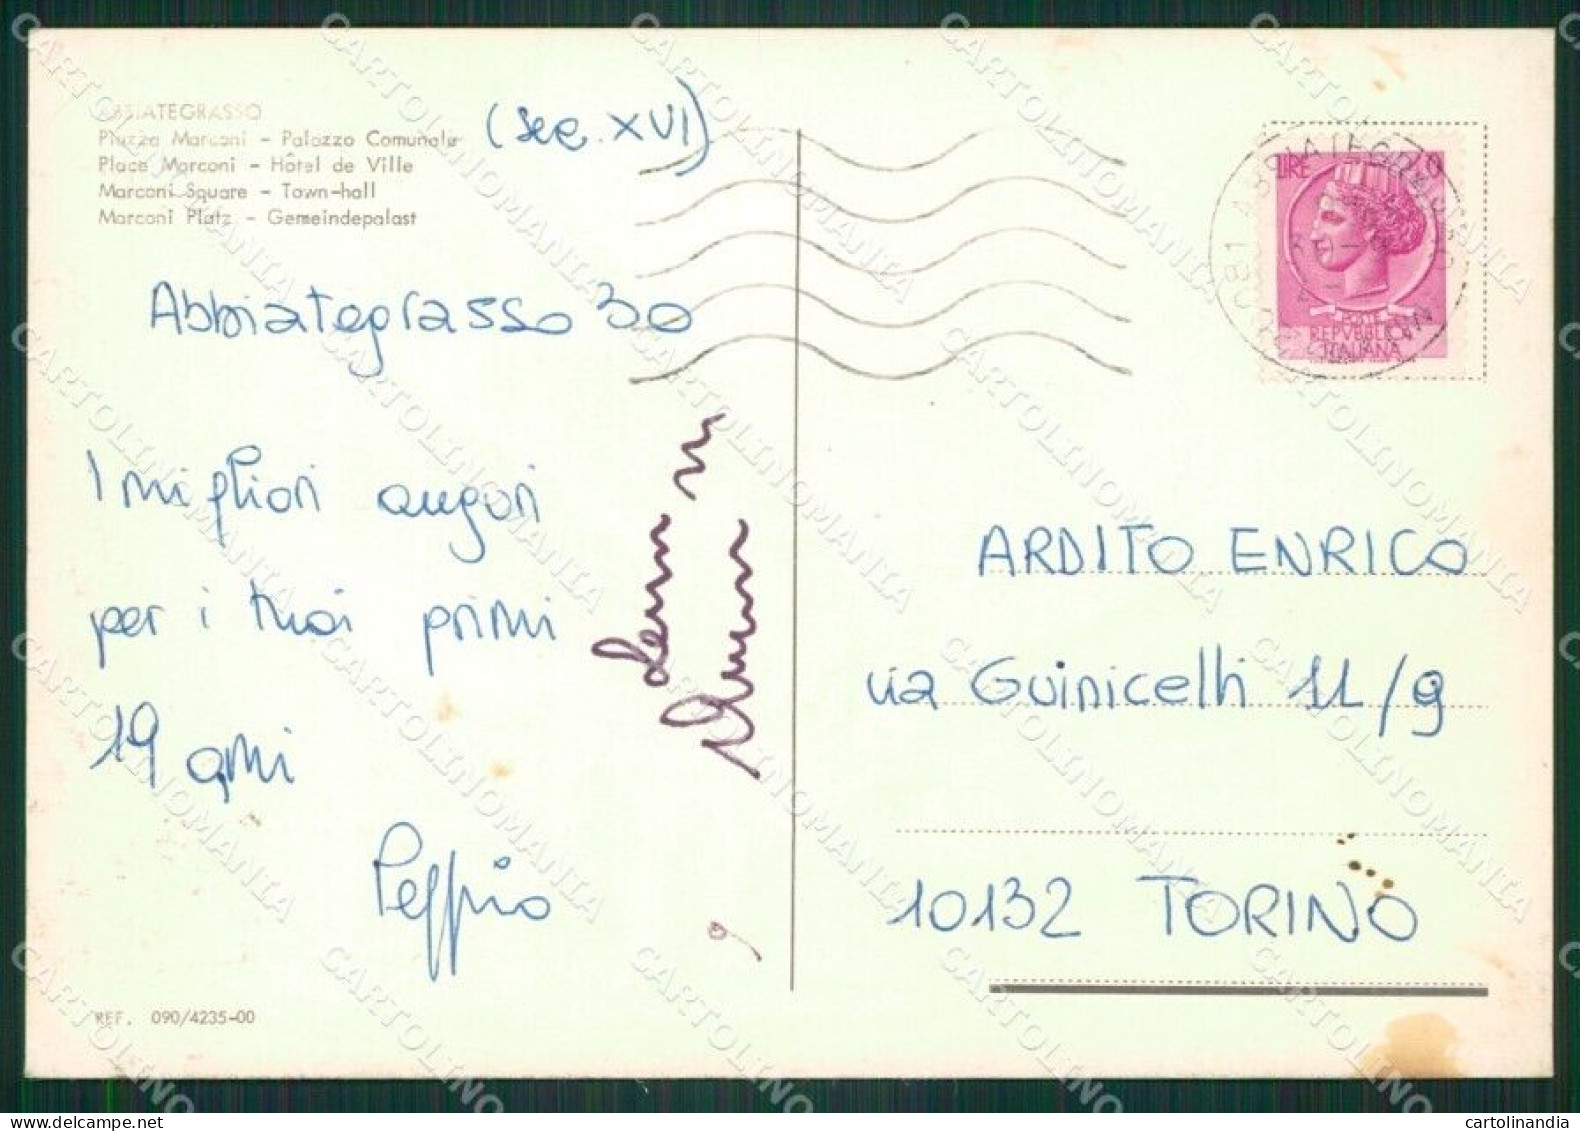 ABBIATEGRASSO
Piazza Marconi - Palazzo Comunale (sec. XVI)
Place Marconi - Hôtel de Ville
Marconi Square - Town-hall
Marconi Platz - Gemeindepalast
Abbiategrasso 30
I migliori auguri
per i tuoi primi
19 anni
Peppino
REF. 090/4235-00
LIRE
POSTE
REPVBBLICA
ITALIANA
20081 ABBIATEGRASSO
ARDITO ENRICO
via Guinicelli 11/9
10132 TORINO
CARTOLINOMANIA
cartolinandia